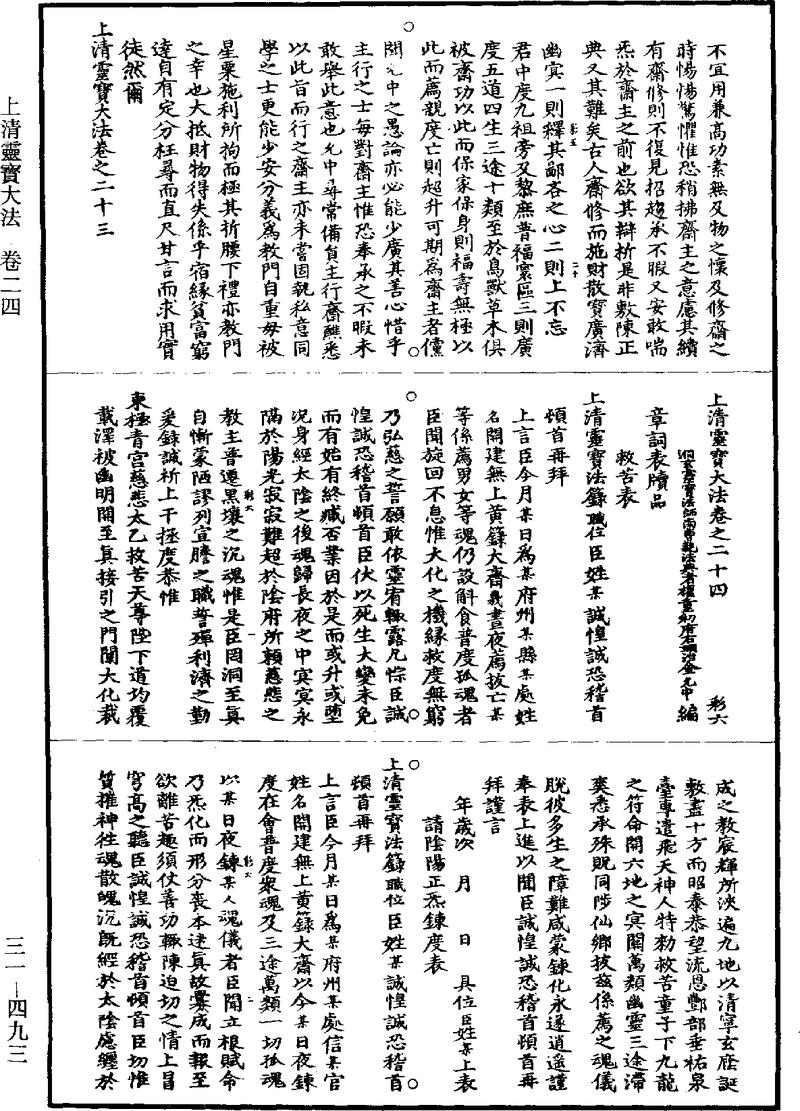 上清靈寶大法 卷二四
三一—四九三
不宜用兼高功素無及物之懷及修齋之
時惕惕驚懼惟恐稍拂齋主之意慮其續
有齋修則不復見招趨承不暇又安敢喘
炁於齋主之前也欲其辯析是非敷陳正
典又其難矣古人齋修而施財散寶廣濟
幽冥一則釋其鄙吝之心二則上不忘
君中度九祖旁及黎庶普福寰區三則廣
度五道四生三途十類至於鳥獸草木俱
被齋功以此而保家保身則福壽無極以
此而薦親度亡則超升可期為齋主者儻
聞允中之愚論亦必能少廣其善心惜乎
主行之士每對齋主惟恐奉承之不暇未
敢舉此意也允中尋常備員主行齋醮悉
以此旨而行之齋主亦未嘗固執私意同
學之士更能少安分義為教門自重毋被
星粟施利所拘而極其折腰下禮亦教門
之幸也大抵財物得失係乎宿緣貧富窮
達自有定分枉尋而直尺甘言而求用實
徒然爾
上清靈寶大法卷之二十三
上清靈寶大法卷之二十四 彩六
章詞表牘品
救苦表
上清靈寶法籙職位臣姓某誠惶誠恐稽首
頓首再拜
上言臣今月某日為某府州某縣某處姓
名開建無上黃籙大齋幾晝夜薦拔亡某
等係薦男女等魂仍設斛食普度孤魂者
臣聞旋回不息惟大化之機緣救度無窮
乃弘慈之誓願敢依靈宥輒露凡悰臣誠
惶誠恐稽首頓首臣伏以死生大變未免
而有始有終臧否業因於是而或升或墮
況身經太陰之後魂歸長夜之中冥冥永
隔於陽光寂寂難超於陰府所賴慈悲之
教主普遷黑壤之沉魂惟是臣罔洞至真
自慚蒙陋謬列宣膽之職誓殫利濟之勤
爰錄誠祈上干極度恭惟
東極青宮慈悲太乙救苦天尊陛下道均覆
載澤被幽明開至真接引之門闡大化裁
成之教宸輝所浹遍九地以清寧玄座誕
敷盡十方而昭泰恭望流恩酆部垂祐泉
臺專遣飛天神人特勑救苦童子下九龍
之符命開六地之冥關萬類幽靈三途滯
爽悉承殊貺同陟仙鄉拔茲係薦之魂儀
脫彼多生之障難咸蒙鍊化永遂逍遙謹
奉表上進以聞臣誠惶誠恐稽首頓首再
拜謹言
年歲次 月 日 具位臣姓某上表
請陰陽正炁鍊度表
上清靈寶法籙職位臣姓某誠惶誠恐稽首
頓首再拜
上言臣今月某日為某府州某處信某官
姓名開建無上黃籙大齋以今某日夜鍊
度在會普度衆魂及三途萬類一切孤魂
以某日夜鍊某人魂儀者臣聞立根賦命
乃炁化而形分喪本迷真故業成而報至
欲離苦趣須仗善功輒陳迫切之情上冒
穹高之聽臣誠惶誠恐稽首頓首臣切惟
質摧神徃魂散魄沉既經於太陰慮纏於